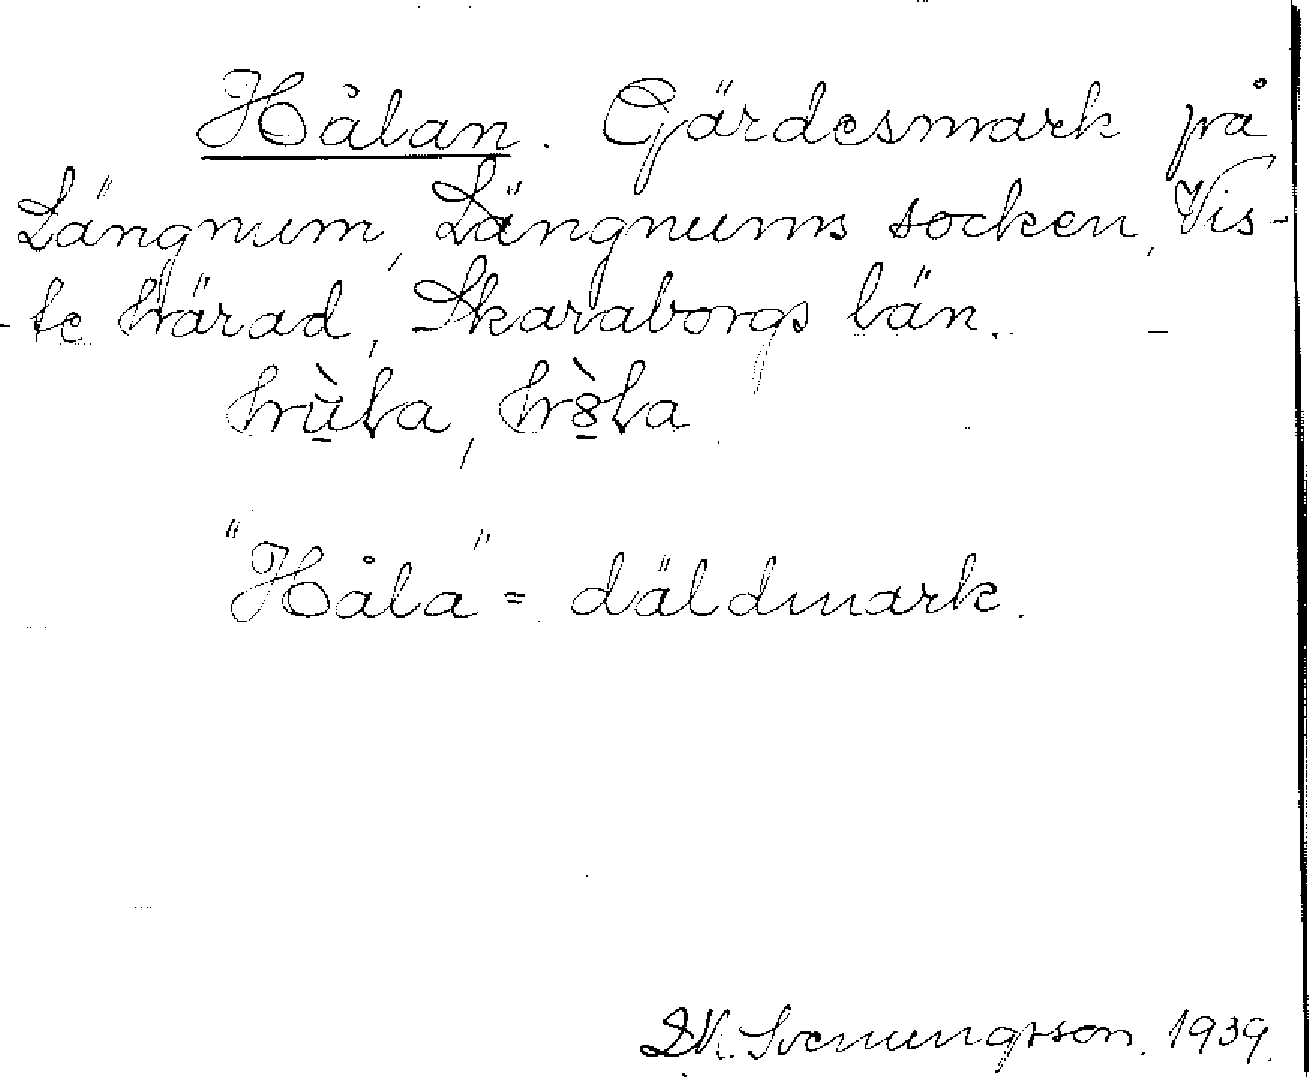 Hålan. Gärdesmark på
Längnum, Längnums socken, Vis-
-te härad, Skaraborgs län. -
"Håla" = däldmark.
Svenungsson. 1939.